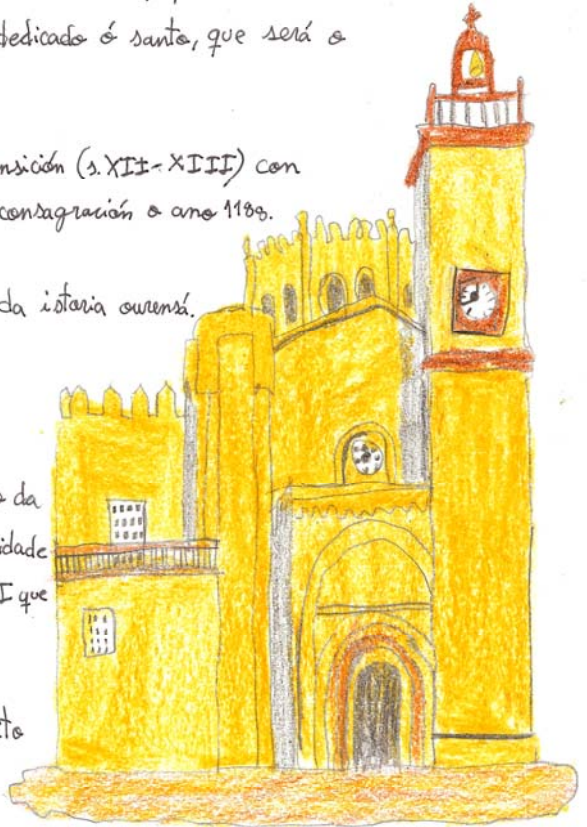 dedicado ó santo, que será o
nsición (s. XII-XIII) con
consagración o ano 1188.
da istoria ourensá.
da
idade
I que
to